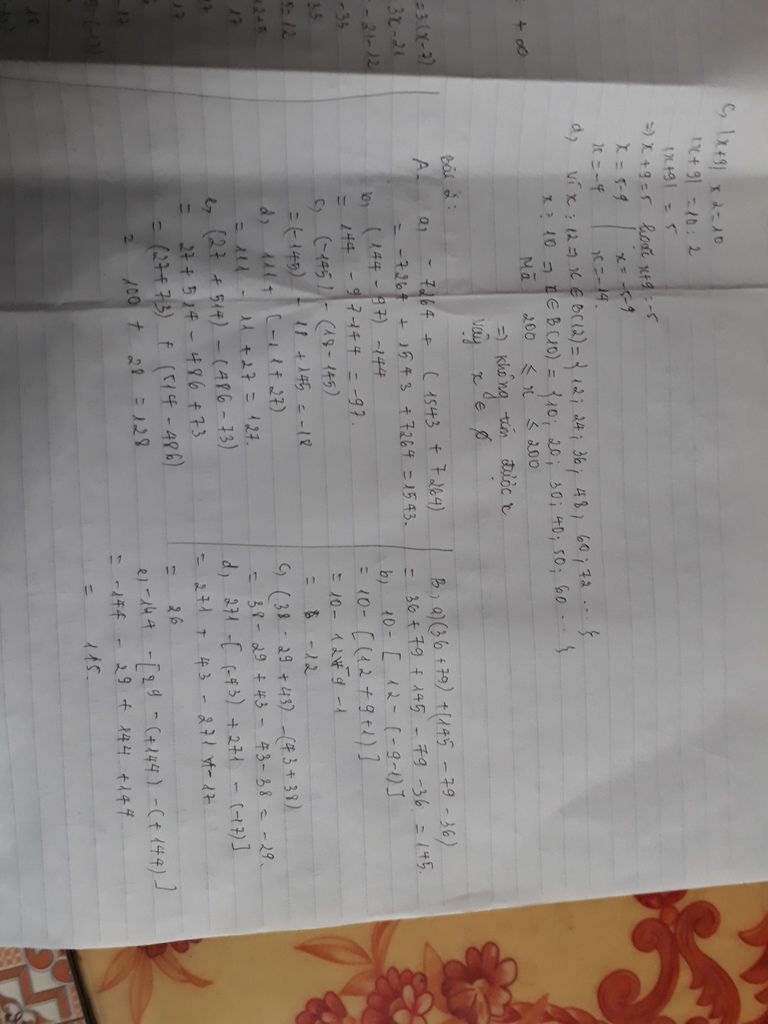 c, |x+9| x 2 = 10
|x+9| = 10 : 2
|x+9| = 5
=> x+9 = 5 hoặc x+9 = -5
x = 5-9 | x = -5-9
x = -4 | x = -14.
d, vì x ⋮ 12 => x ∈ B(12) = {12; 24; 36; 48; 60; 72 ... }
x ⋮ 10 => x ∈ B(10) = {10; 20; 30; 40; 50; 60 ... }
Mà 200 ≤ x ≤ 200
=> không tìm được x
vậy x ∈ ∅
Bài 2:
A. a, - 7264 + (1543 + 7264)
= -7264 + 1543 + 7264 = 1543.
b, (144 - 97) - 144
= 144 - 97 - 144 = -97.
c, (-145) - (18 - 145)
= (-145) - 18 + 145 = -18
d, 111 + (-11 + 27)
= 111 - 11 + 27 = 127.
e, (27 + 514) - (486 - 73)
= 27 + 514 - 486 + 73
= (27 + 73) + (514 - 486)
= 100 + 28 = 128
B, a) (36 + 79) + (145 - 79 - 36)
= 36 + 79 + 145 - 79 - 36 = 145.
b, 10 - [12 - (-9 - 1)]
= 10 - [(12 + 9 + 1)]
= 10 - 12 - 9 - 1
= -12
c, (38 - 29 + 43) - (43 + 38)
= 38 - 29 + 43 - 43 - 38 = -29.
d, 271 - [(-43) + 271 - (-17)]
= 271 + 43 - 271 - 17
= 26
e, -144 - [29 - (+144) - (+144)]
= -144 - 29 + 144 + 144
= 115.
+ ∞
= 3(x-7)
3x - 21
- 21 - 12
- 33
33
12 + 5
17